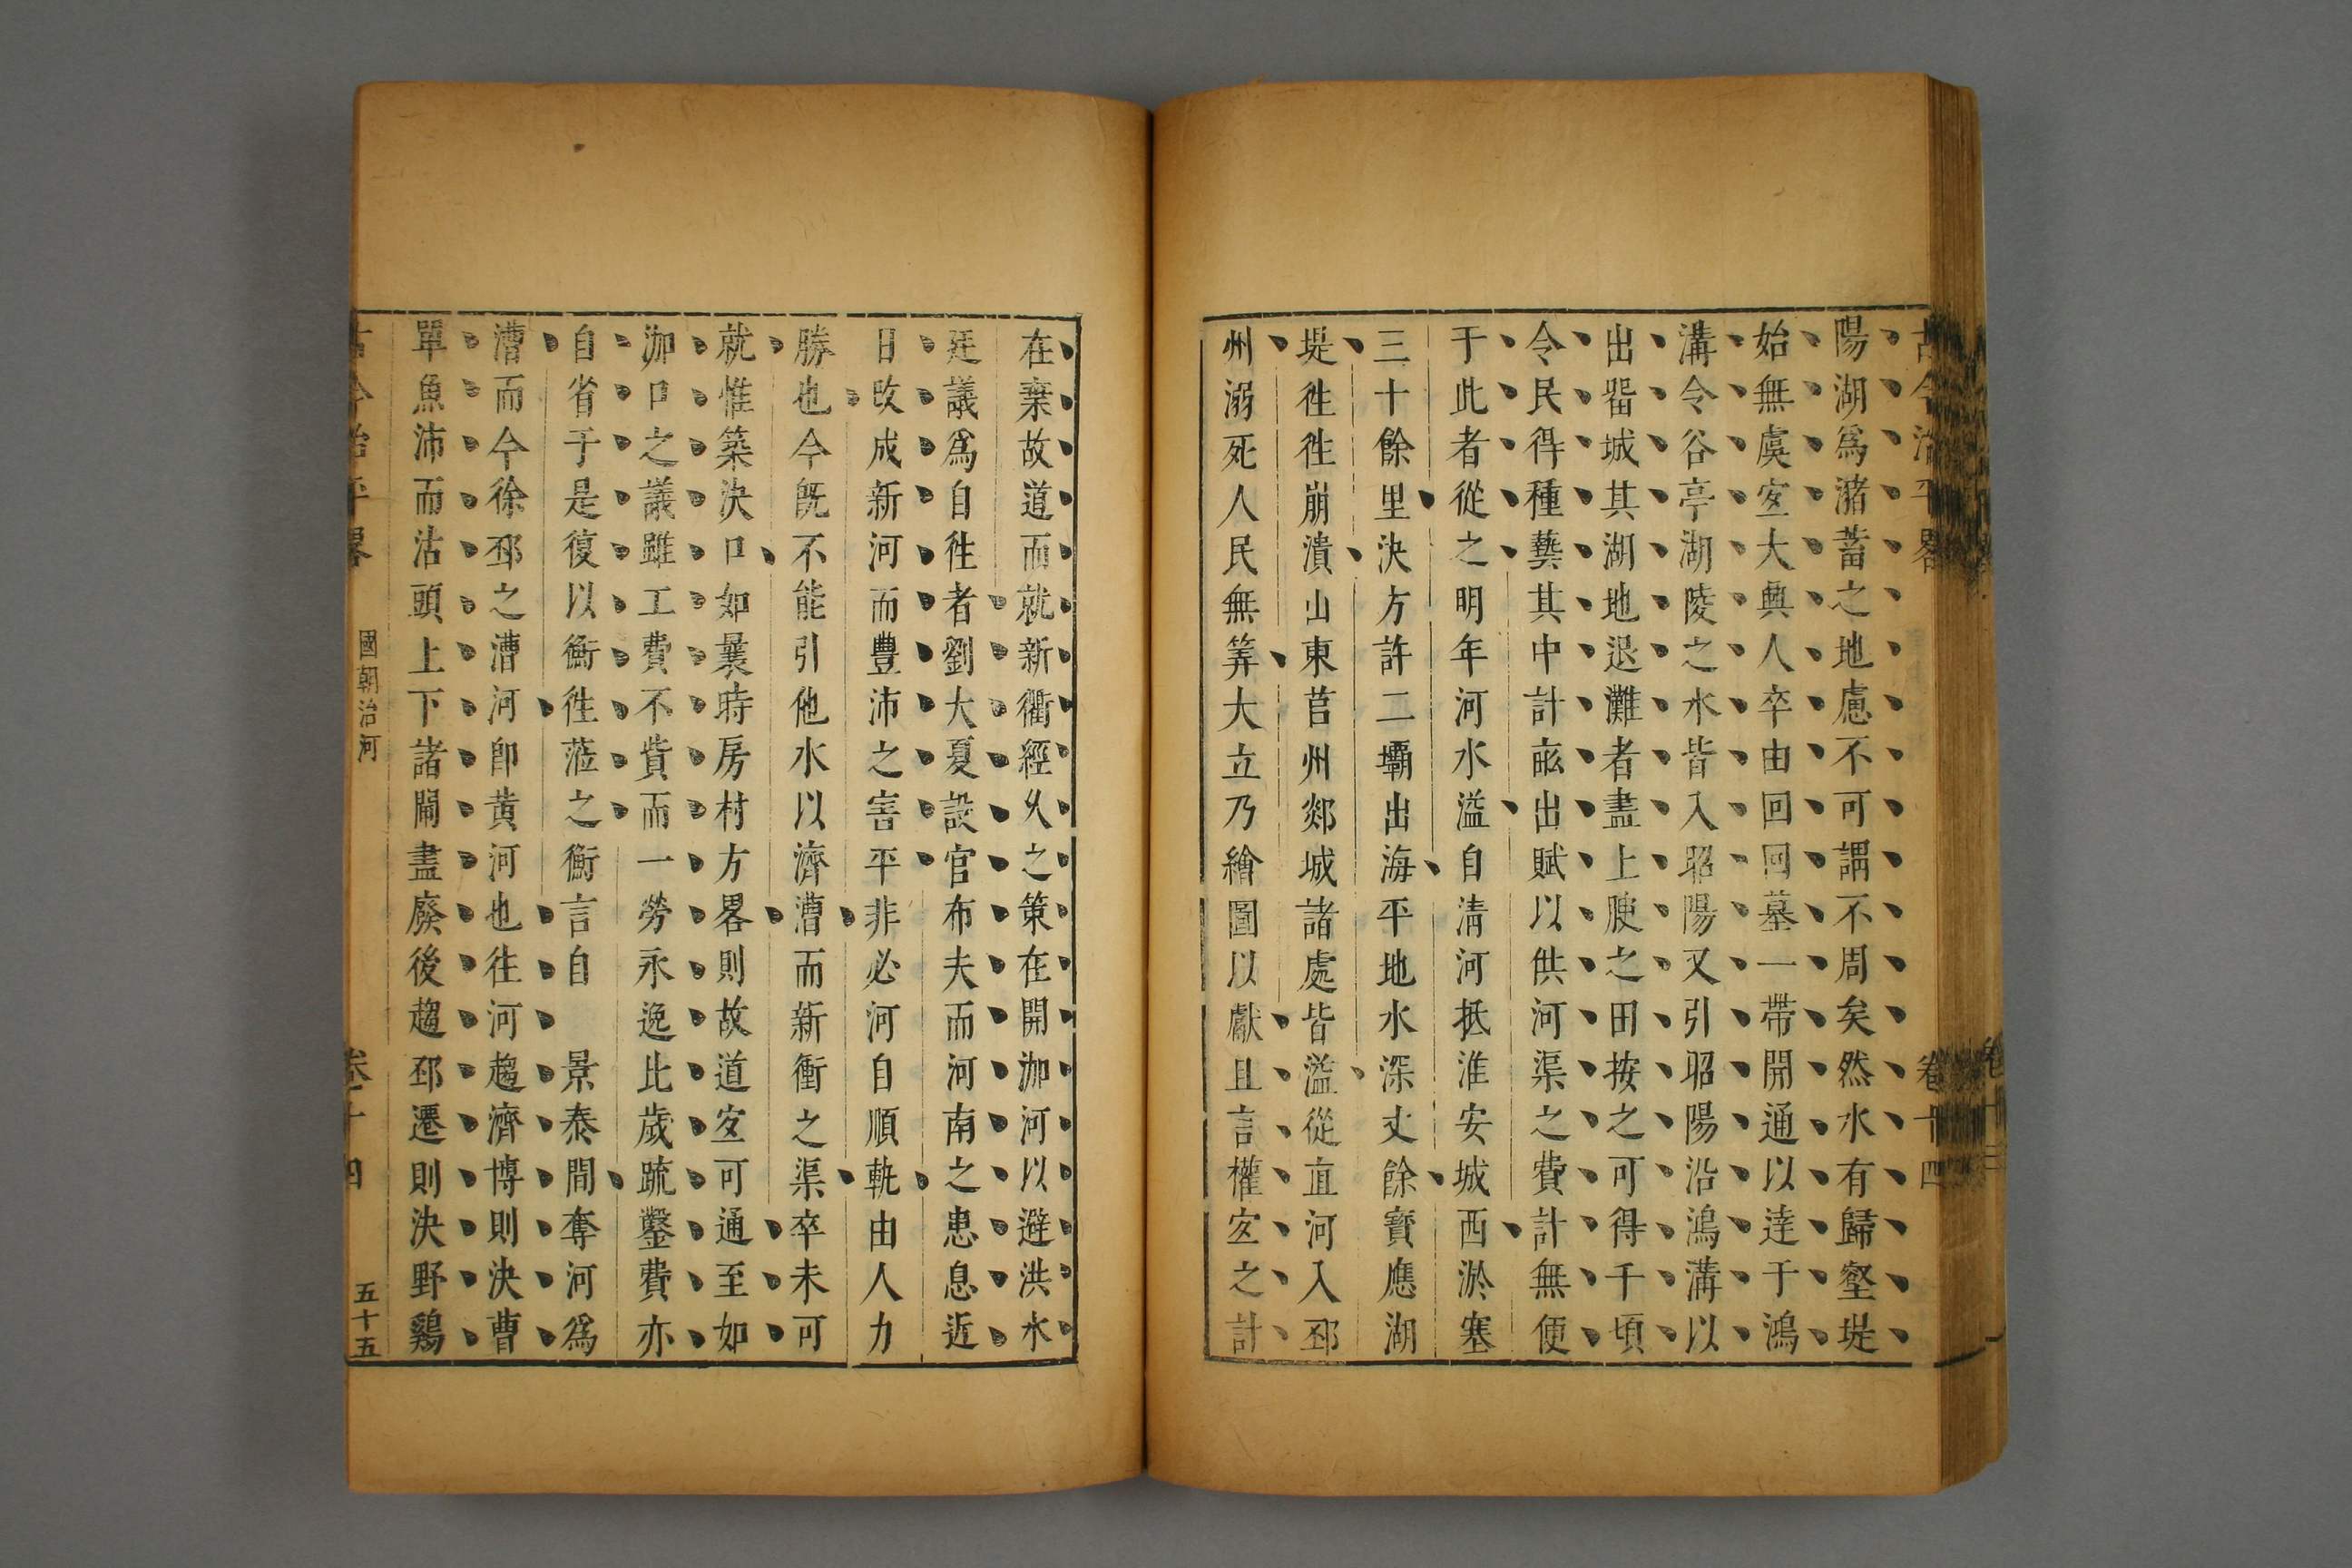 古今治平畧 卷十四
陽湖爲瀦蓄之地慮不可謂不周矣然水有歸壑堤
始無虞宐大興人卒由回回墓一帶開通以達于鴻
溝令谷亭湖陵之水皆入昭陽又引昭陽沿鴻溝以
出畱城其湖地退灘者盡上腴之田按之可得千頃
令民得種藝其中計畝出賦以供河渠之費計無便
于此者從之明年河水溢自清河抵淮安城西淤塞
三十餘里決方許二壩出海平地水深丈餘寳應湖
堤徃徃崩潰山東莒州郯城諸處皆溢從直河入邳
州溺死人民無筭大立乃繪圖以獻且言權宐之計
在棄故道而就新衝經乆之策在開泇河以避洪水
廷議爲自徃者劉大夏設官布夫而河南之患息近
日改成新河而豐沛之害平非必河自順軌由人力
勝也今旣不能引他水以濟漕而新衝之渠卒未可
就惟築決口如曩時房村方畧則故道宐可通至如
泇口之議雖工費不貲而一勞永逸比歲疏鑿費亦
自省于是復以衡徃蒞之衡言自 景泰間奪河爲
漕而今徐邳之漕河卽黄河也往河趨濟博則決曹
單魚沛而沽頭上下諸閘盡廢後趨邳遷則決野鷄
古今治平畧 國朝治河 卷十四 五十五